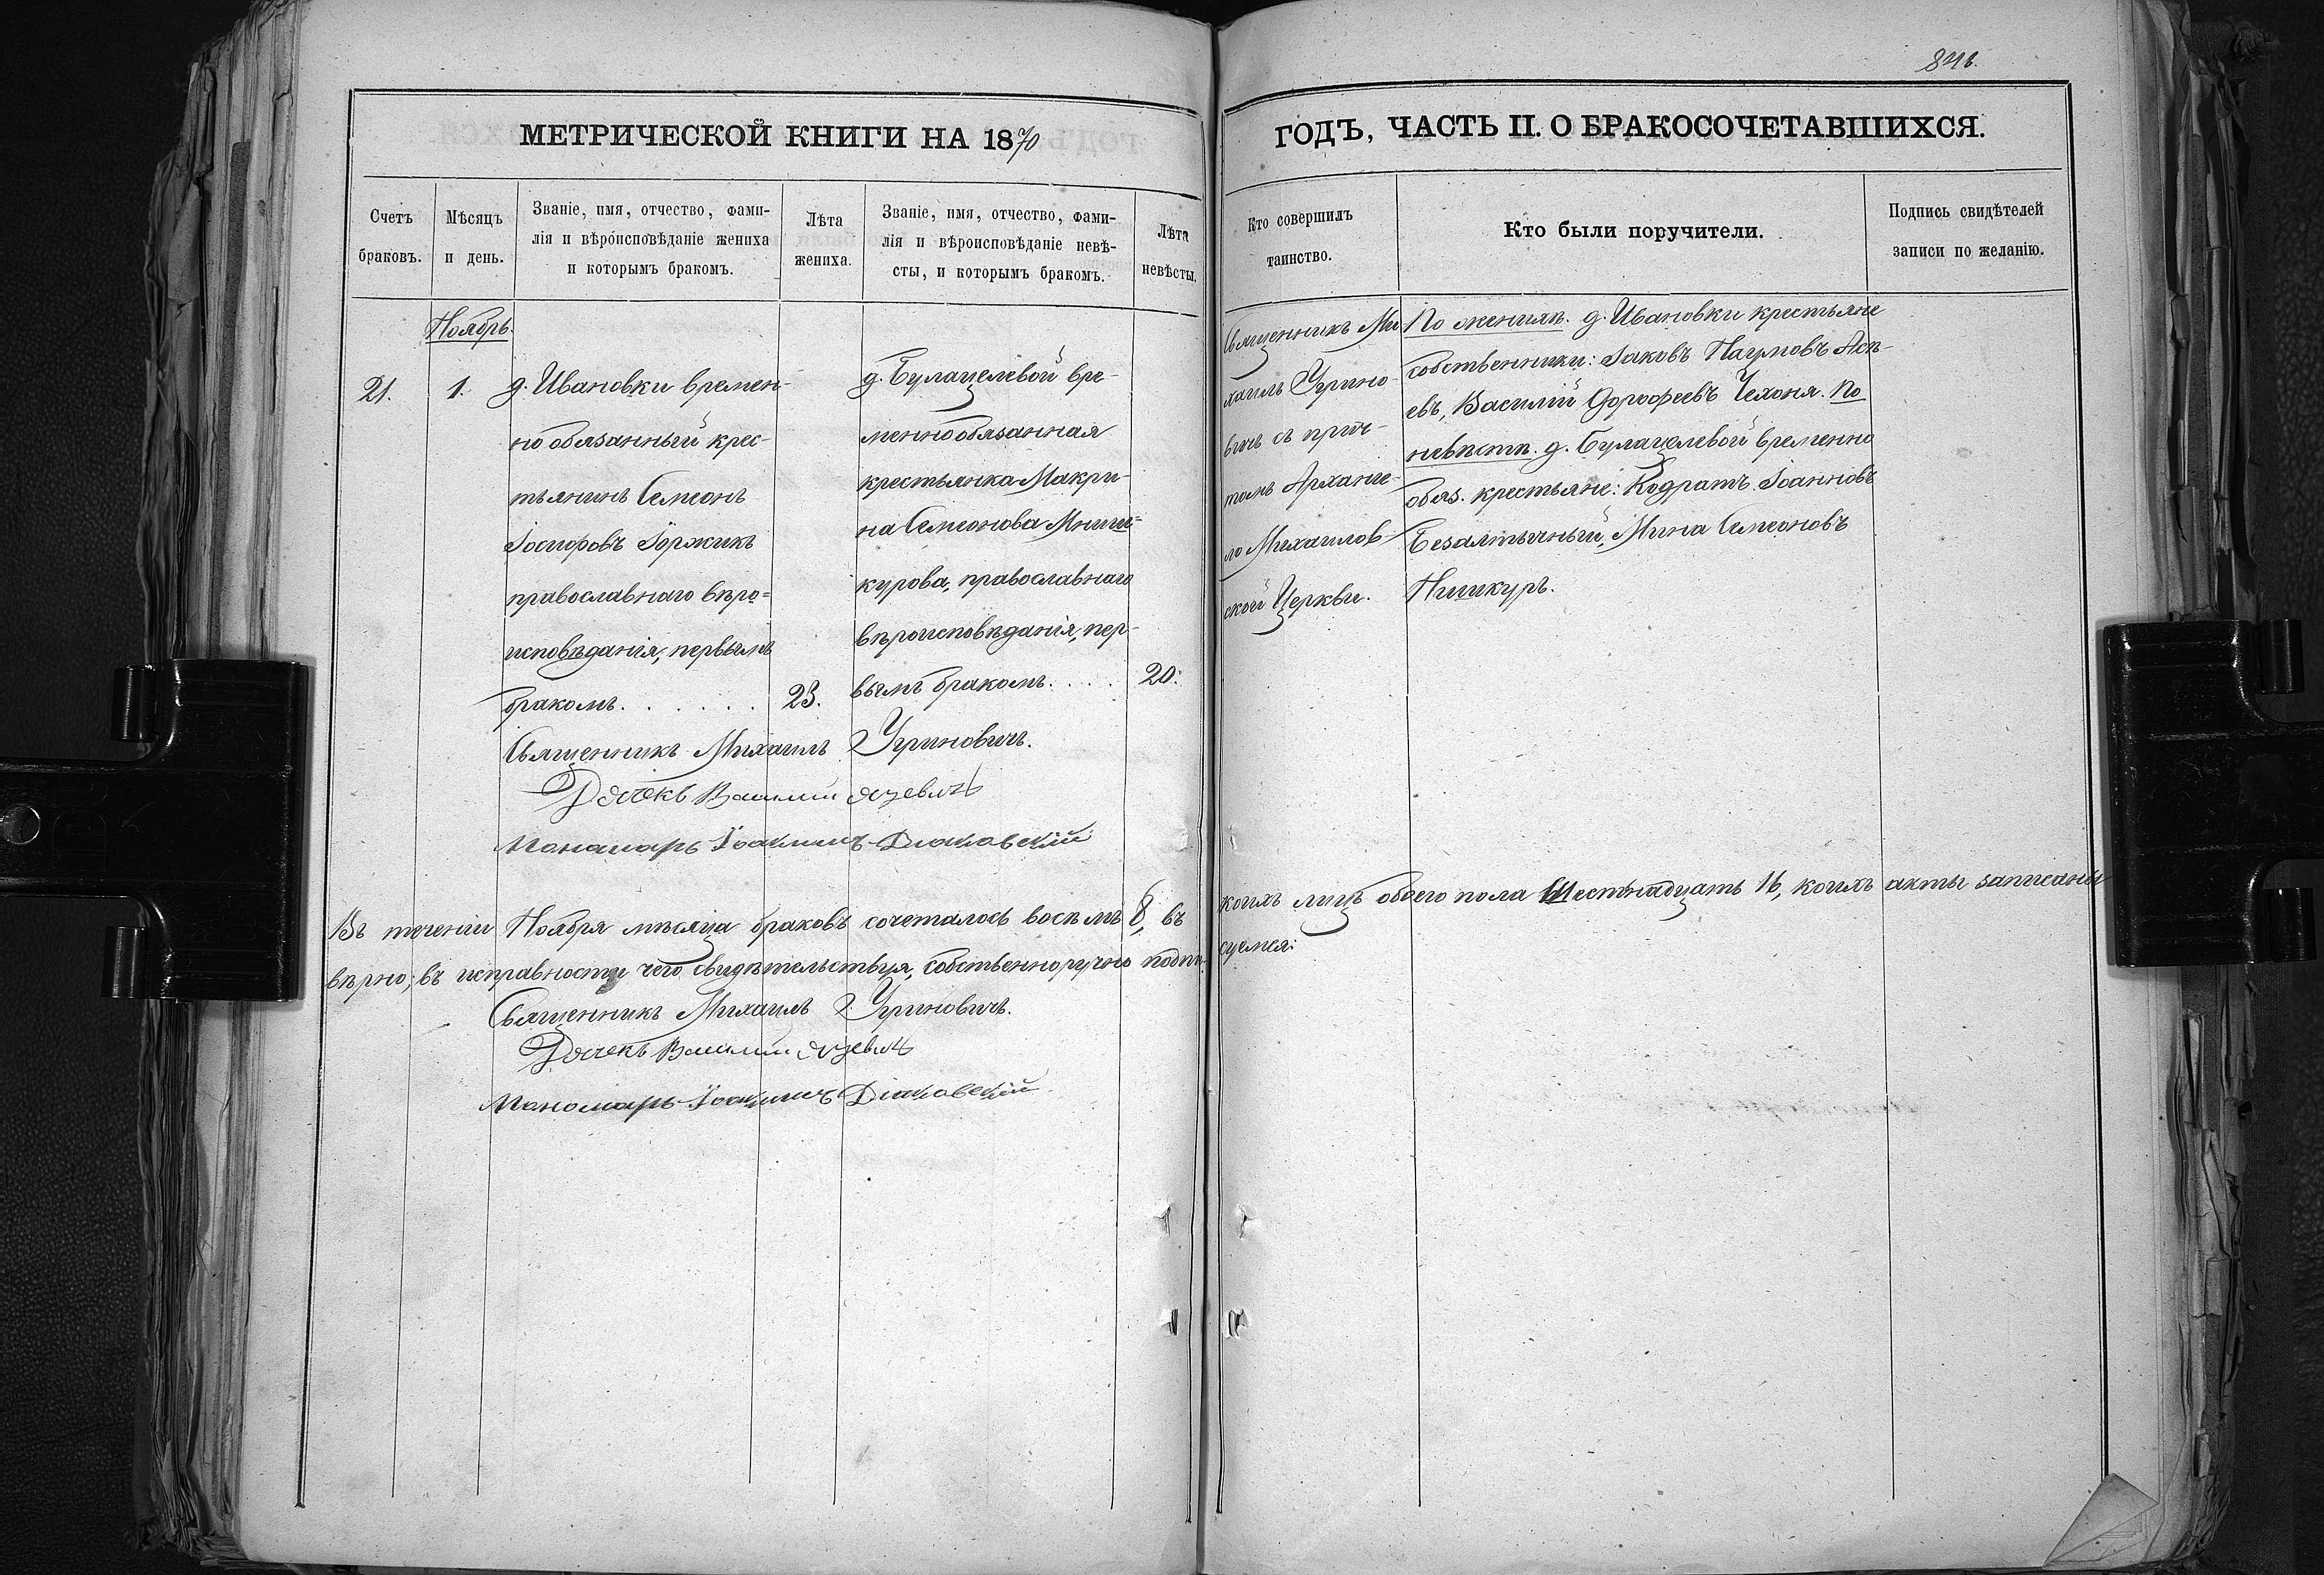 84б.
МЕТРИЧЕСКОЙ КНИГИ НА 1870
ГОДЪ, ЧАСТЬ II. О БРАКОСОЧЕТАВШИХСЯ.
Счетъ
браковъ.
Мѣсяцъ
и день.
Званіе, имя, отчество, фами-
лія и вѣроисповѣданіе жениха
и которымъ бракомъ.
Лѣта
жениха.
Званіе, имя, отчество, фами-
лія и вѣроисповѣданіе невѣ-
сты, и которымъ бракомъ.
Лѣта
невѣсты.
Кто совершилъ
таинство.
Кто были поручители.
Подпись свидѣтелей
записи по желанію.
Ноябрь.
21.
1.
д. Ивановки времен-
но обязанный крес-
тьянинъ Семеонъ
Іосифовъ Іоржикъ
православнаго вѣро=
исповѣданія, первымъ
бракомъ. . . . . . .
23.
д. Булацелевой вре-
менно обязанная
крестьянка Макри-
на Семеонова Мниш=
курова, православнаго
вѣроисповѣданія, пер-
вымъ бракомъ. . . .
20.
Священникъ Ми
хаилъ Угрино-
вичъ съ прич-
томъ Арханге-
ло Михаилов-
ской Церкви.
По женихѣ. д. Ивановки крестьяне
собственники: Іаковъ Наумовъ
евъ, Василій Дорофеевъ Чехоня. По
невѣстѣ. д. Булацелевой временно
обяз. крестьяне: Кодратъ Іоанновъ
Безалтычный, Мина Семеоновъ
Пишкуръ.
Священникъ Михаилъ Угриновичъ.
Дячекъ Василій
Панамарь Іоакимъ Діаковскій
Въ теченіи Ноября мѣсяца браковъ сочеталось восемь 8, въ
коихъ лицъ обоего пола Шестнадцать 16, коихъ акты записаны
вѣрно; въ исправности чего свидѣтельствуя, собственноручно подпи-
суемся:
Священникъ Михаилъ Угриновичъ.
Дячекъ Василій
Паномарь Іоакимъ Діаковскій